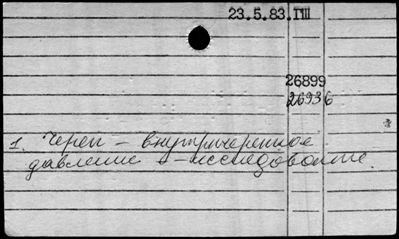 23.5.83.ПШ
26899
26936
1. Череп – внутричерепное
давление – исследование.